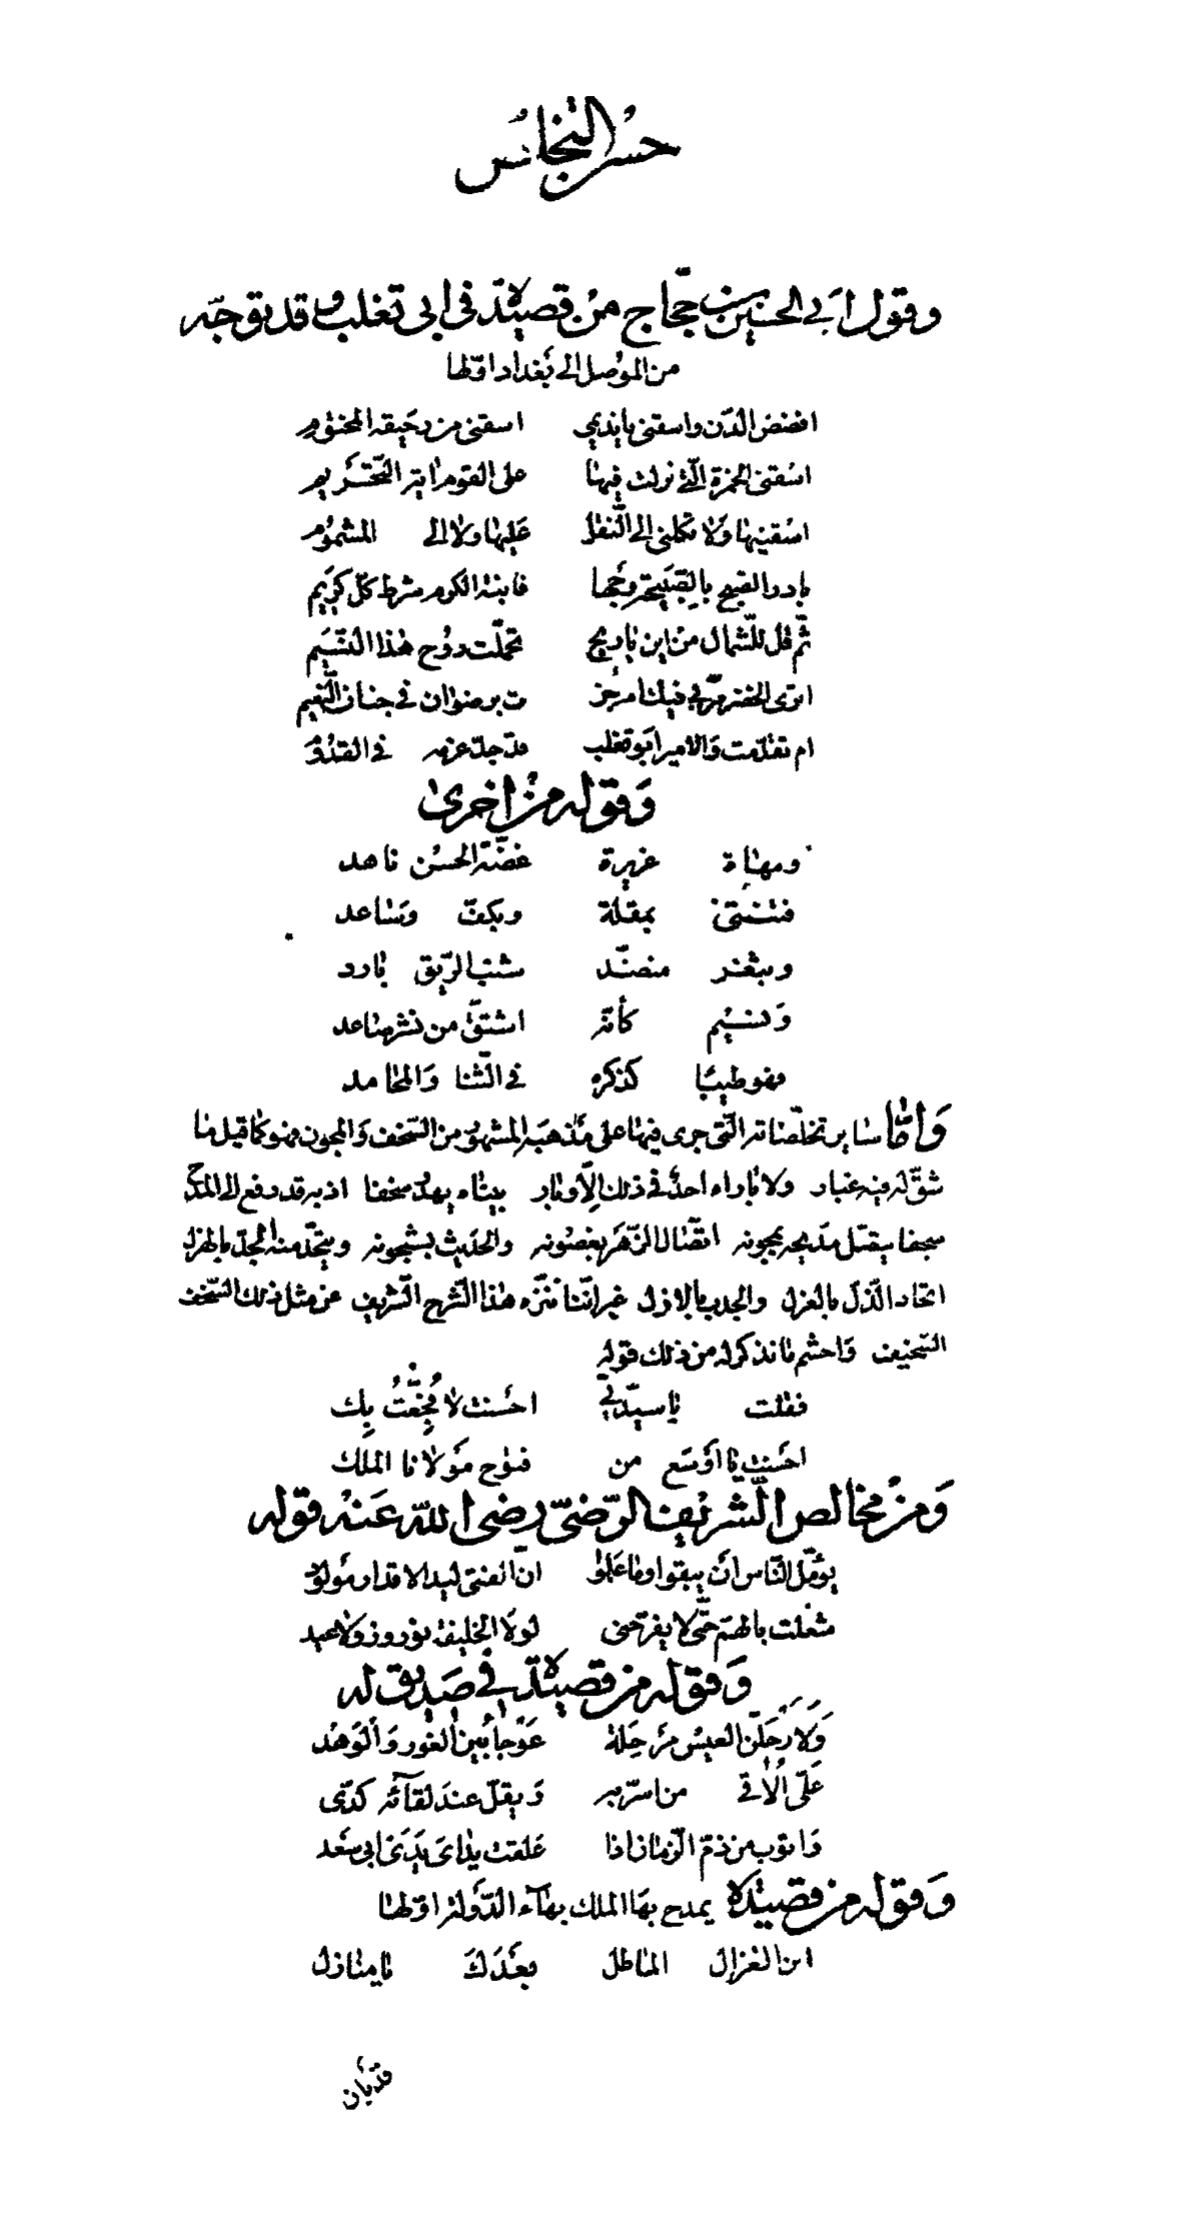 حسن التجانس
وقول ابي الحسين بن حجاج من قصيدة في ابي تغلب وقد توجّه
من الموصل الى بغداد اوّلها
افضض الدّن واسقني يا نديمي اسقني من رحيقه المختوم
اسقني الخمرة الّتي نزلت فيها على القوم اية التّحريم
اسقنيها ولا تكلني الى النّقل عليها ولا الى المشموم
بادر الصّبح بالصّبيحة وجها فابنة الكرم شرط كلّ كريم
ثمّ قل للّشمال من اين يا ريح تحمّلت روح هذا النّسيم
اترى الخضر مرّ لي فيك ام جز ت برضوان في جنان النّعيم
ام تقدّمت والامير ابو تغلب قد جدّ عزمه في القدوم
وقوله من اخرى
ومهاة غريرة غضّة الحسن ناهد
فتنتني بمقلة وبكفّ وساعد
وبثغر منضّد شنب الرّيق بارد
ونسيم كأنّه اشتقّ من نشر صاعد
فهو طيبا كذكره في الثّنا والمحامد
وامّا ساير تخلّصاته الّتي جرى فيها على مذهبه المشهور من السّخف والمجون فهو كما قيل ما
شقّ له فيه غبار ولا باراه احد في ذلك الّا وبار بيناه يهدّ سخفا اذ به قد رفع الى المدح
سجفا يتصل مديحه بمجونه اتّصال الزّهر بغصونه والحديث بشجونه ويتّحد منه الجدّ بالهزل
اتحاد الذّل بالعزل والجدب بالازل غير انّنا ننزّه هذا الشّرح الشّريف عن مثل ذلك السّخف
السّخيف واحشم ما نذكر له من ذلك قوله
فقلت يا سيّدتي احسنت لا فُجِّعتُ بِك
احسنت يا اوسع من فتوح مولانا الملك
ومن مخالص الشّريف الرّضيّ رضي اللّه عنه قوله
يؤمّل النّاس أن يبقوا وما علموا انّ الفتى ليد الاقدار مولود
شغلت بالهمّ حتّى لا يفرّحني لولا الخليفة نوروز ولا عيد
وقوله من قصيدة في صديق له
وَلَا رَحَلَنّ العيس مرحلة عوجا بين الغور والوهد
علّي الاقي من اسرّ به ويقلّ عند لقآئه كدّي
واتوب من ذمّ الزّمان اذا علقت يداي يدي ابي سعد
وقوله من قصيدة يمدح بها الملك بهآء الدّولة اوّلها
اين الغزال الماطل بعدك يا منازل
قد بان